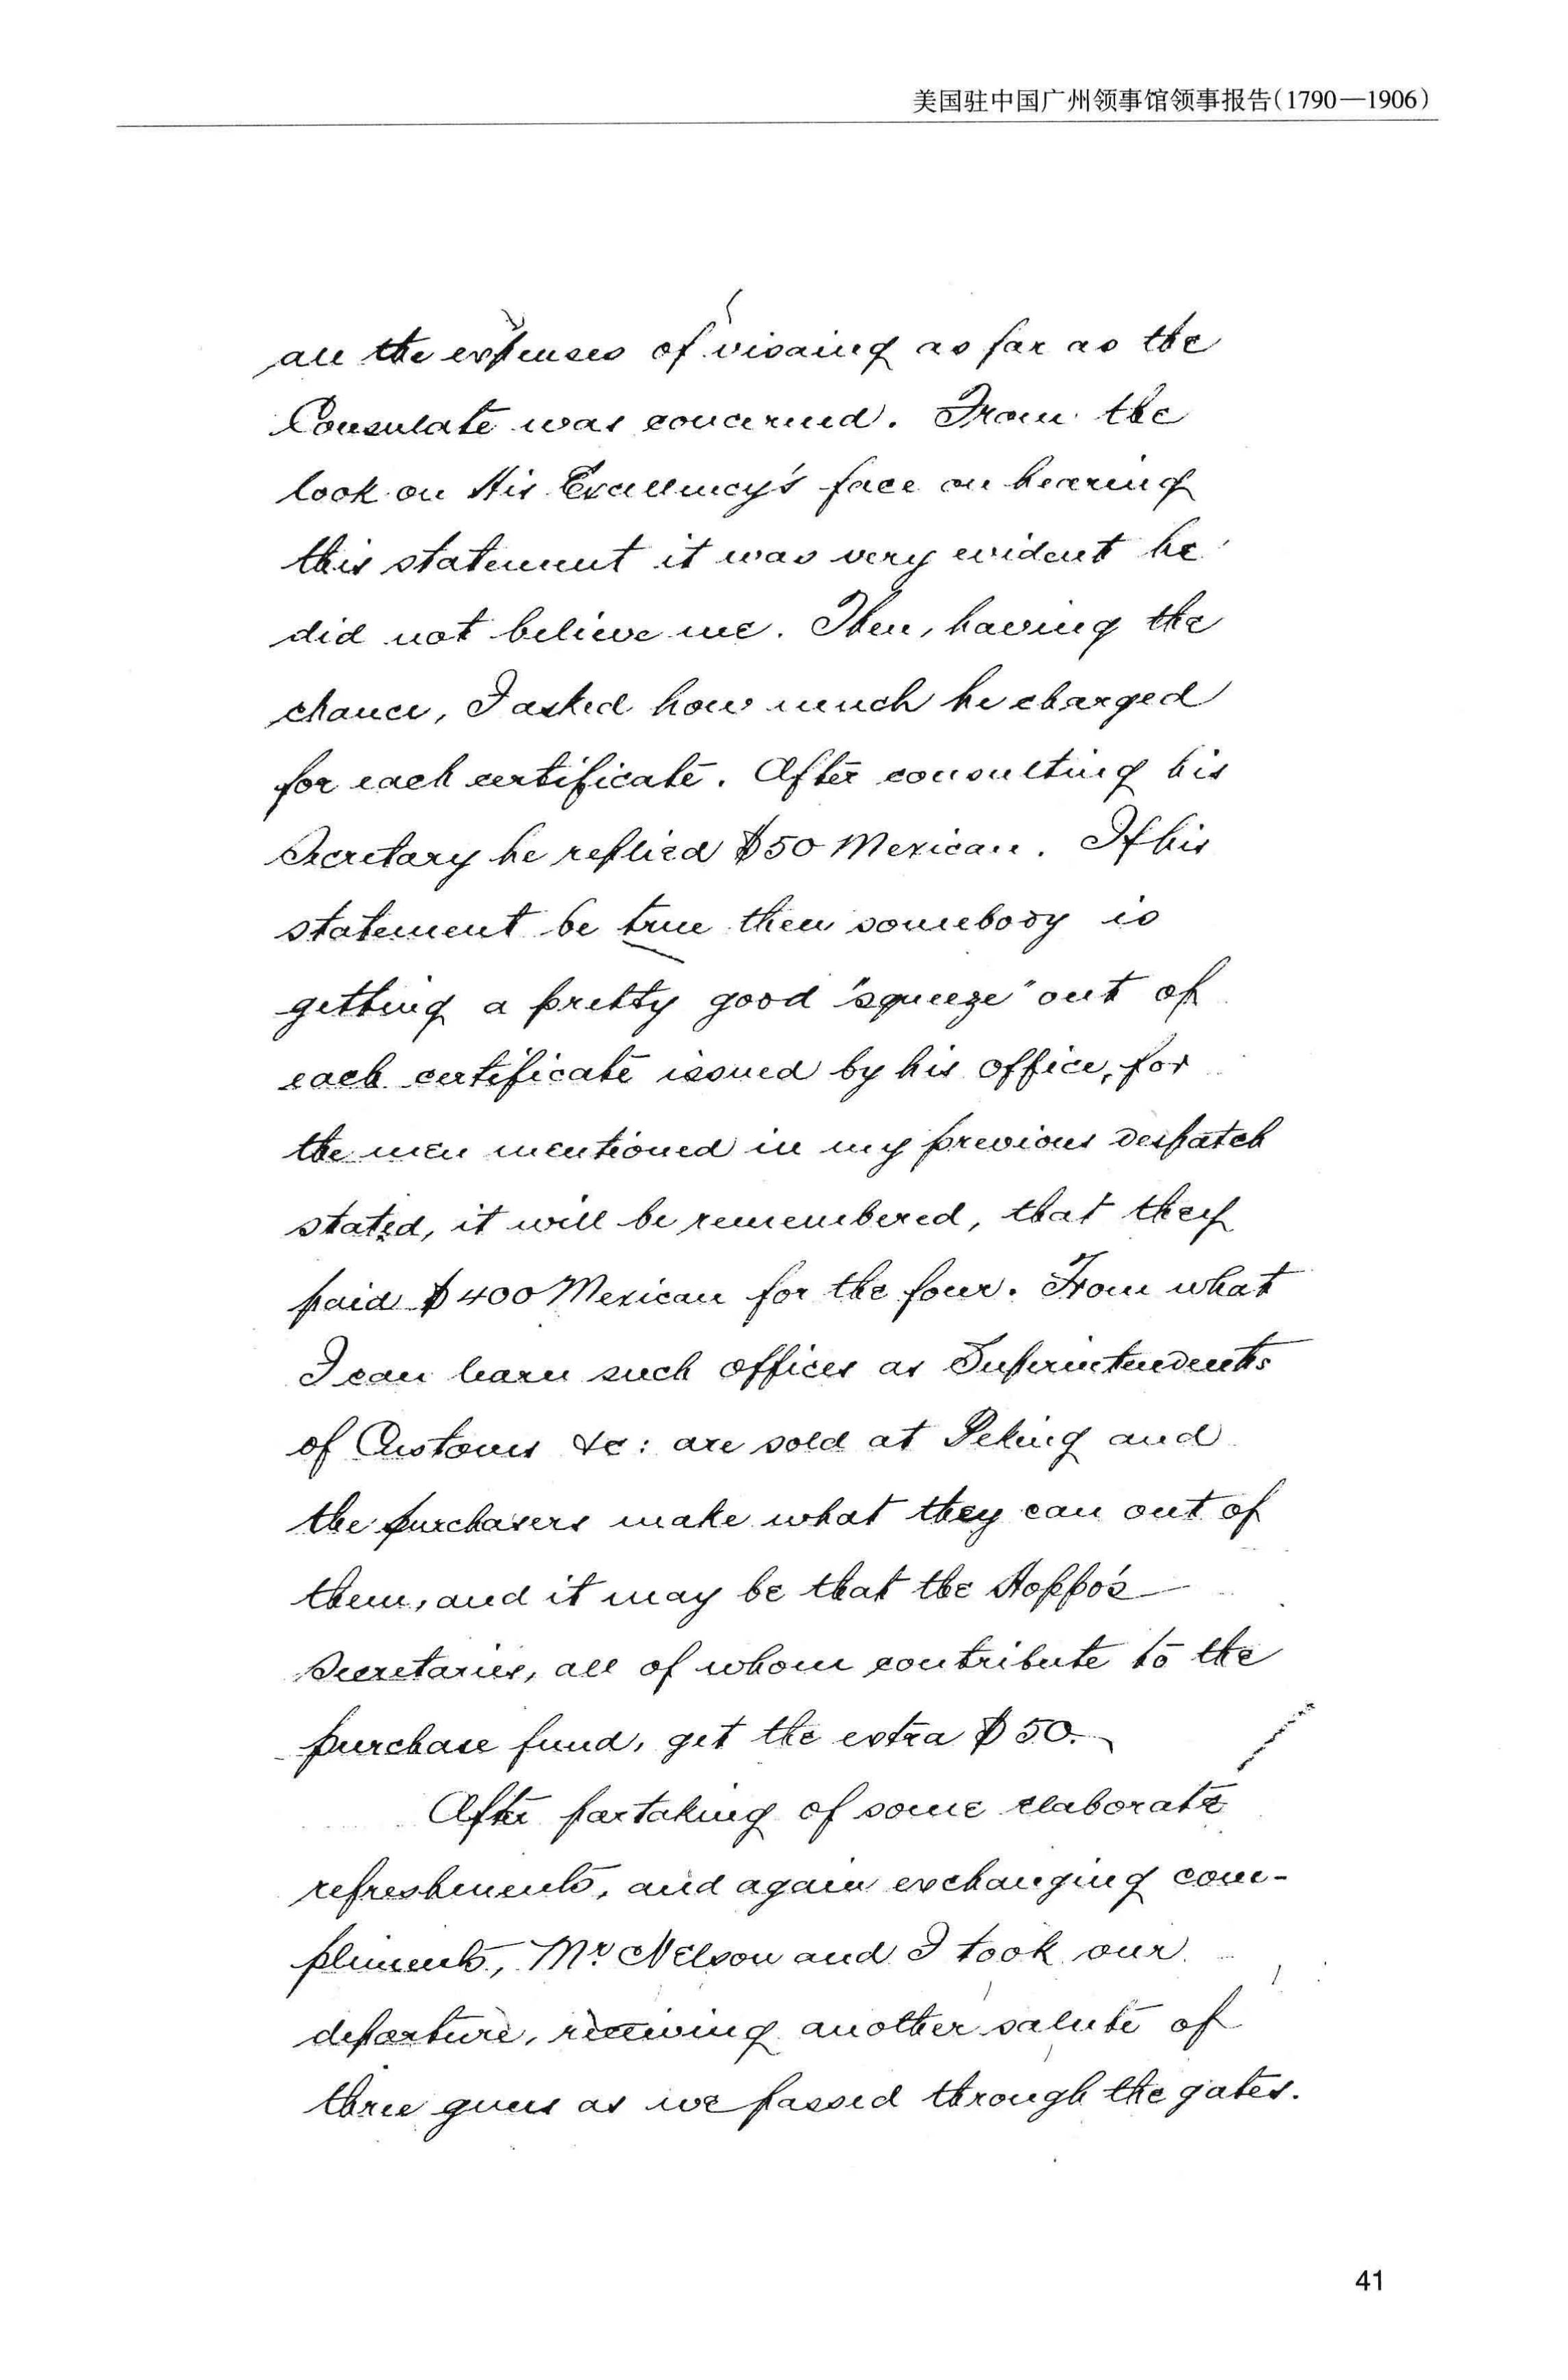 美国驻中国广州领事馆领事报告(1790—1906)
all the expenses of visaing as far as the
Consulate was concerned. From the
look on His Excellency's face on hearing
this statement it was very evident he
did not believe me. Then, having the
chance, I asked how much he charged
for each certificate. After consulting his
Secretary he replied $50 Mexican. If his
statement be true then somebody is
getting a pretty good "squeeze" out of
each certificate issued by his office, for
the men mentioned in my previous despatch
stated, it will be remembered, that they
paid $400 Mexican for the four. From what
I can learn such offices as Superintendents
of Customs &c: are sold at Peking and
the purchasers make what they can out of
them, and it may be that the Hoppo's
Secretaries, all of whom contribute to the
purchase fund, get the extra $50.
After partaking of some elaborate
refreshments, and again exchanging com-
pliments, Mr Nelson and I took our
departure, receiving another salute of
three guns as we passed through the gates.
41